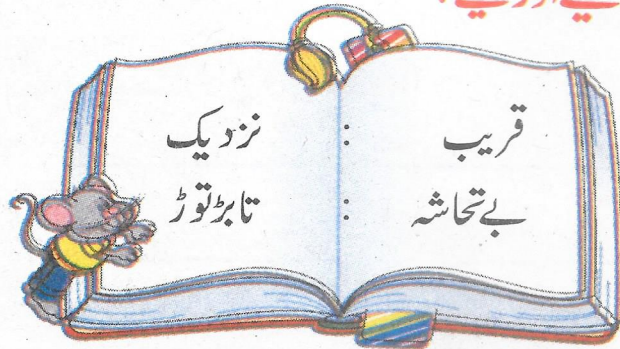 قریب : نزدیک
بے تحاشہ : تابڑ توڑ